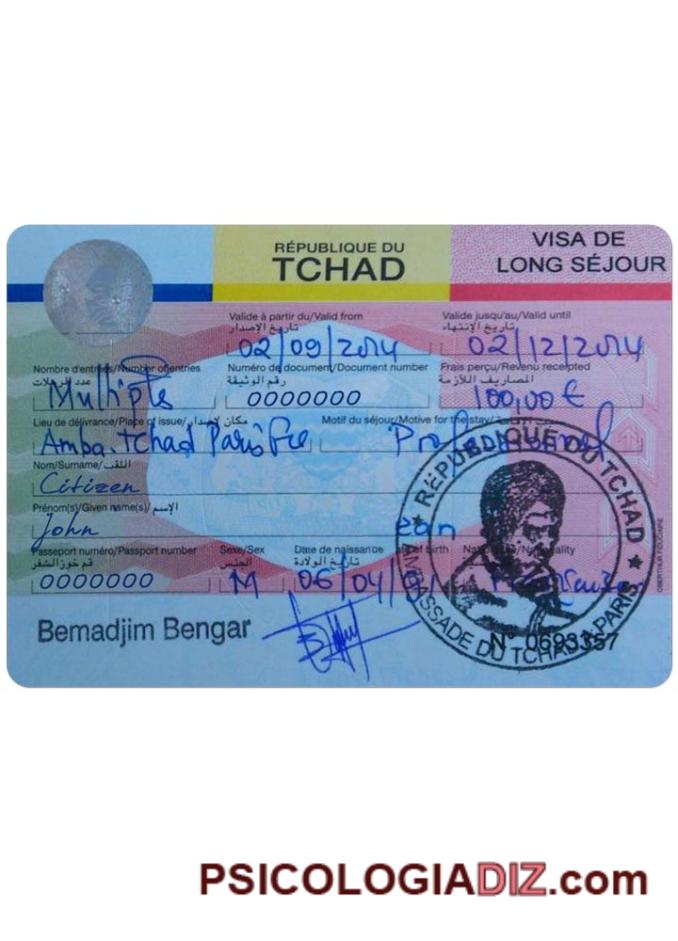 RÉPUBLIQUE DU
TCHAD
VISA DE
LONG SÉJOUR
Valide à partir du/Valid from
تاريخ الإصدار
02/09/2014
Valide jusqu'au/Valid until
تاريخ الإنتهاء
02/12/2014
Nombre d'entrées/Number of entries
عدد الرحلات
Multiple
Numéro de document/Document number
رقم الوثيقة
0000000
Frais perçu/Revenu receipted
المصاريف اللازمة
100,00 €
Lieu de délivrance/Place of issue/مكان الإصدار
Amba. Tchad Paris
Motif du séjour/Motive for the stay/
Nom/Surname/اللقب
Citizen
Prénom(s)/Given name(s)/الإسم
John
Passeport numéro/Passport number
0000000
Sexe/Sex
الجنس
M
Date de naissance of birth
تاريخ الولادة
06/04/
Bemadjim Bengar
RÉPUBLIQUE DU TCHAD
AMBASSADE DU TCHAD A PARIS
N° 0693357
OBERTHUR FIDUCIAIRE
PSICOLOGIADIZ.com